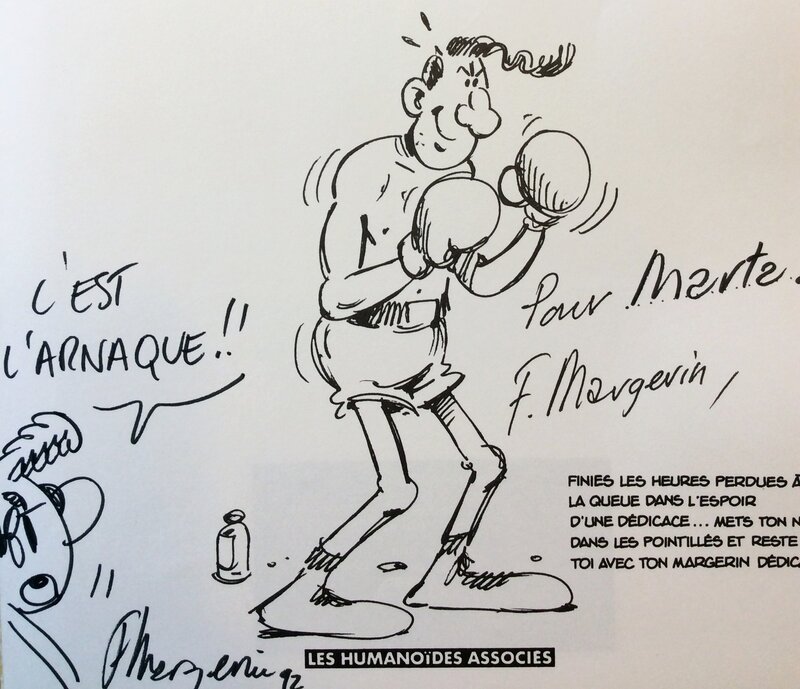 C'EST
L'ARNAQUE!!
Pour Marta.
F. Margerin
FINIES LES HEURES PERDUES À
LA QUEUE DANS L'ESPOIR
D'UNE DÉDICACE... METS TON N
DANS LES POINTILLÉS ET RESTE
TOI AVEC TON MARGERIN DÉDIC
F Margerin 92
LES HUMANOÏDES ASSOCIES